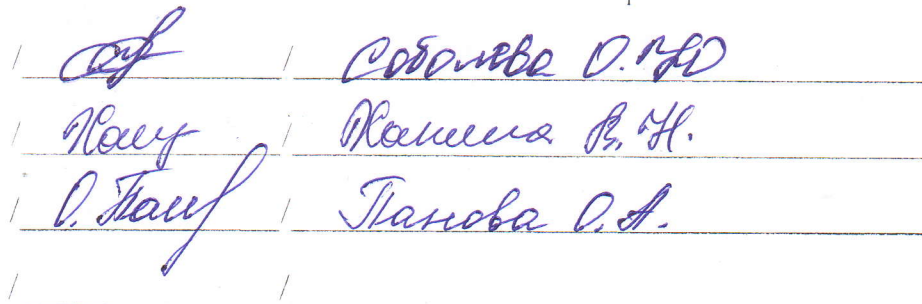 / / Соболева О.Ю
/ / Ханина В.Н.
/ О. Пан / Панова О.А.
/ /